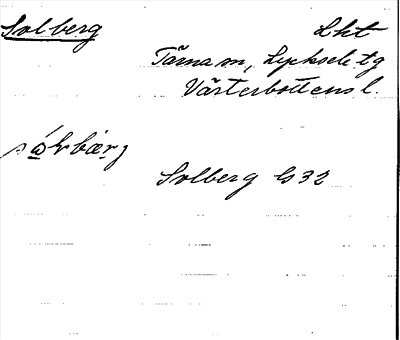 Solberg Lht
Tärna m, Lycksele tg
Västerbottens l.
Solberg G32